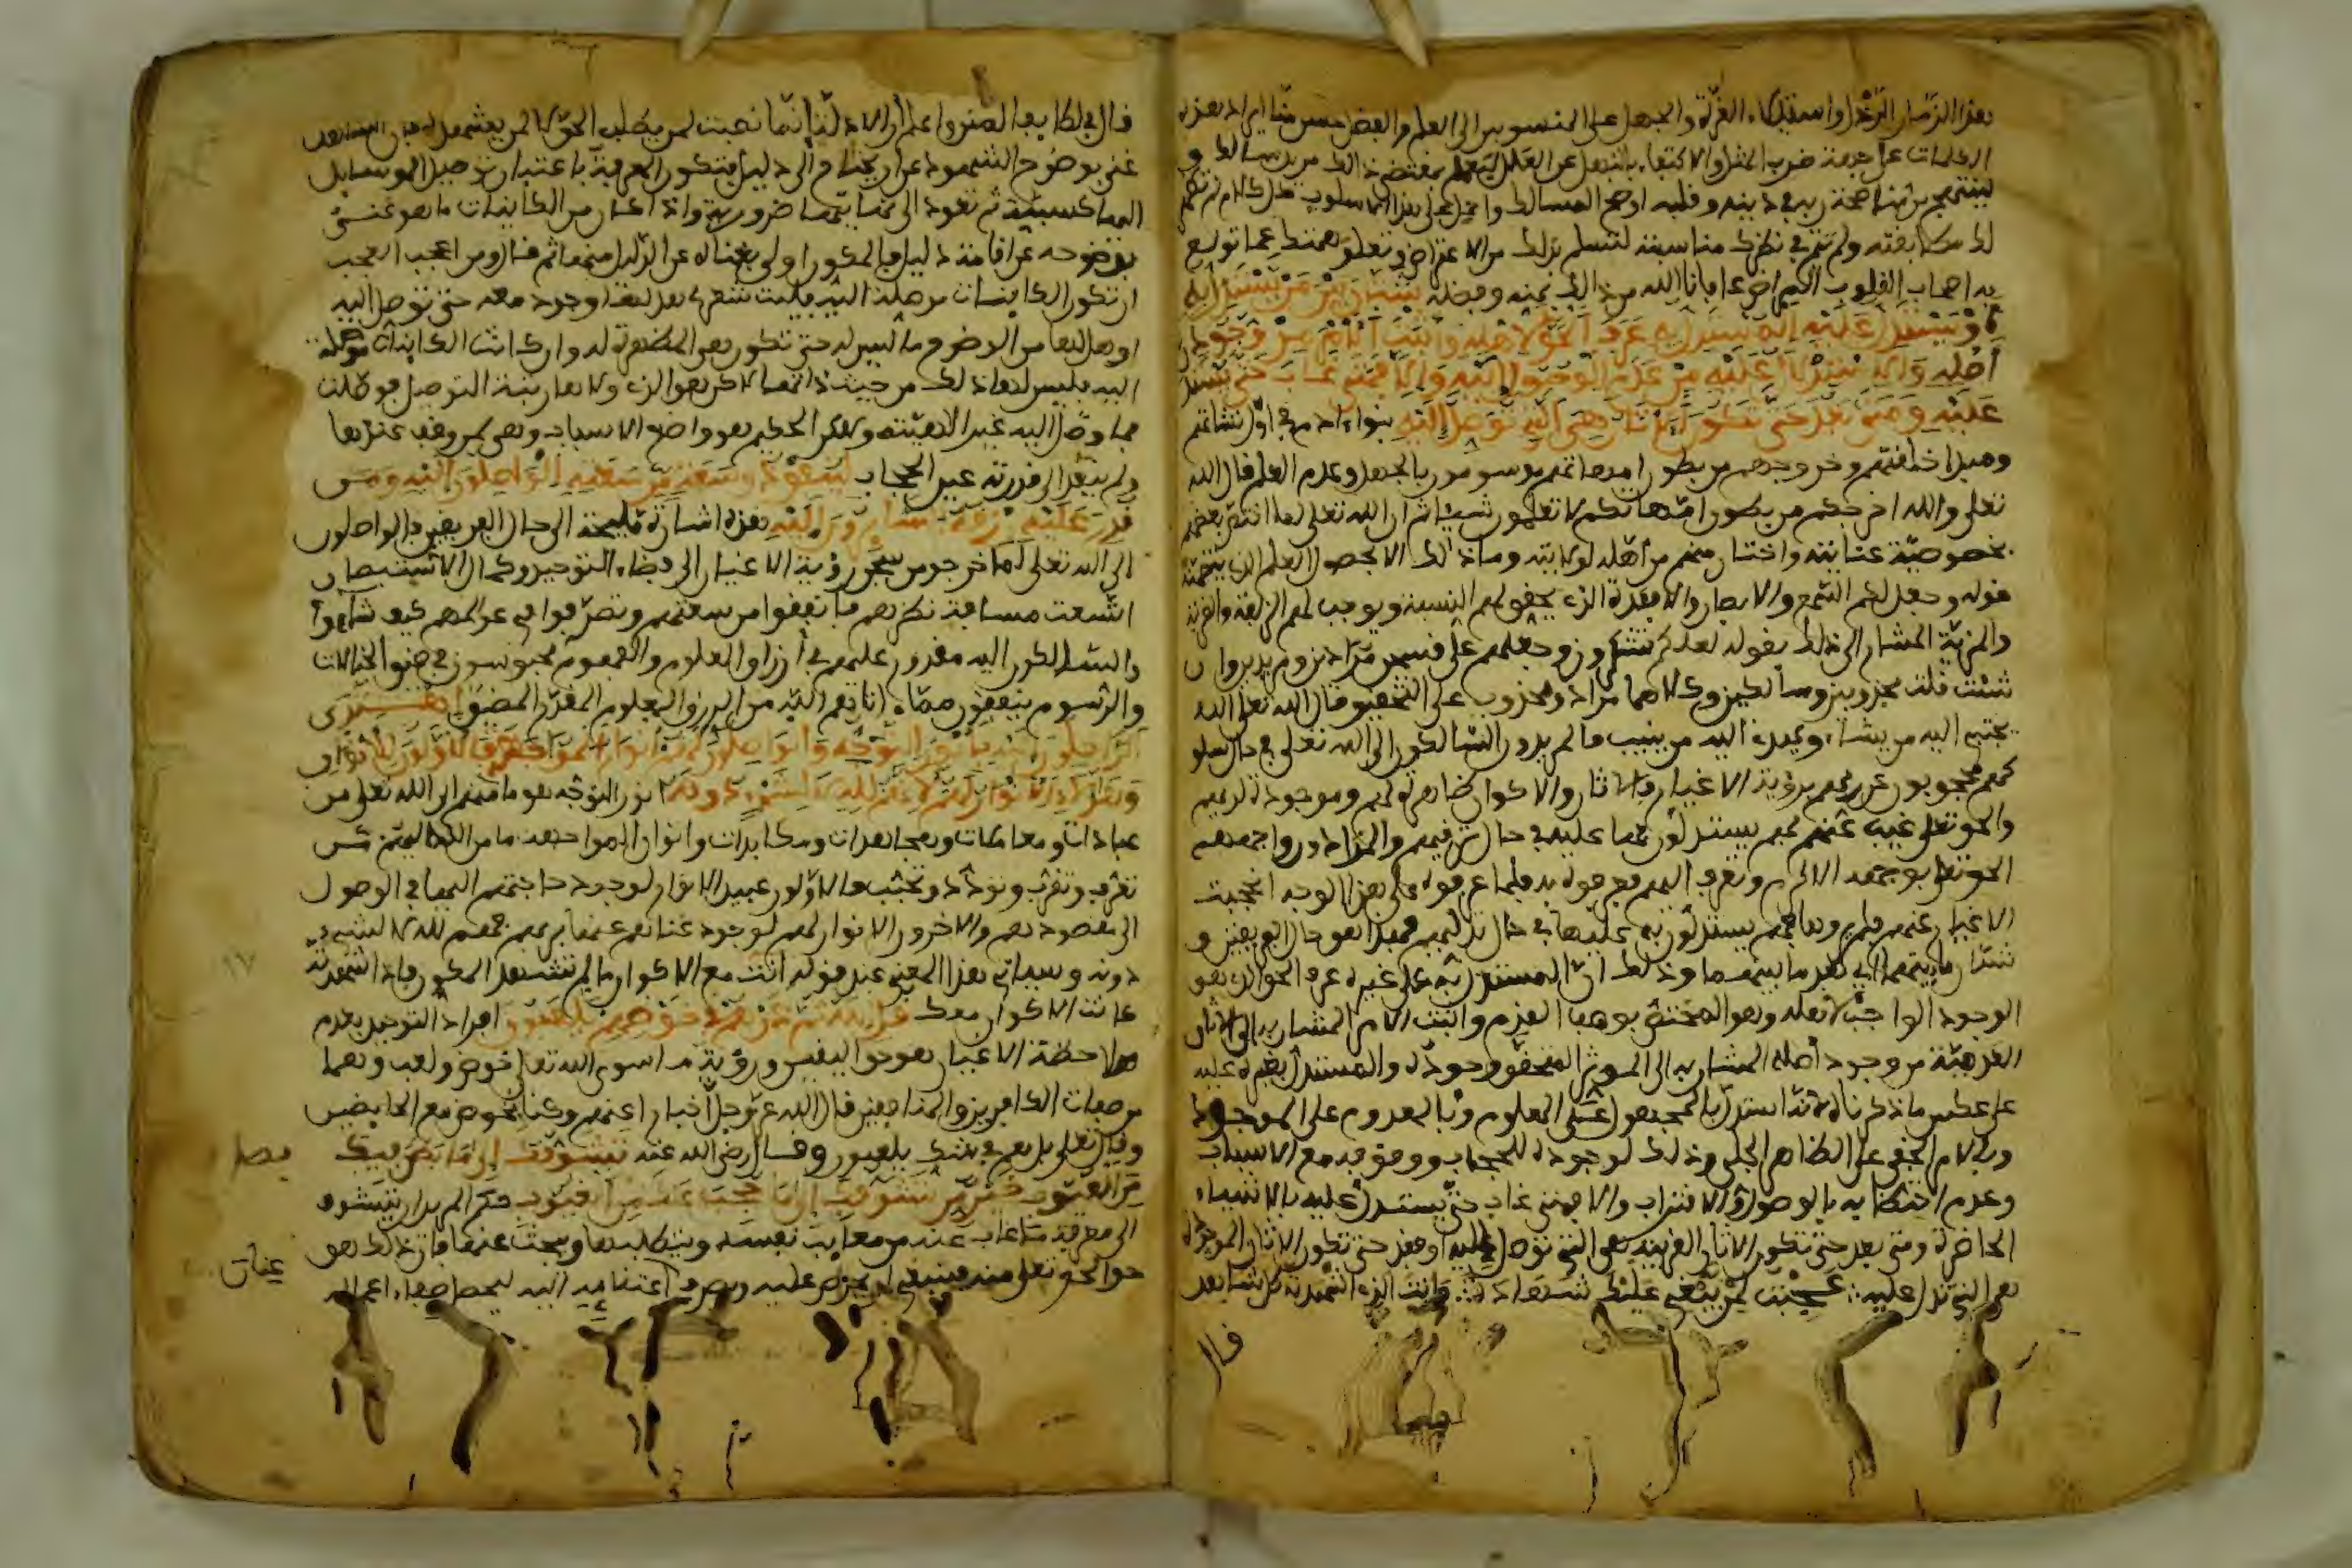 بهذا الزمان الرذل واستيلاء الغرة والجهل على المنسوبين الى العلم والفضل
الكلمات على جهة ضرب المثل والاكتفاء بالنهل عن العلل ليعمل بمقتضى ذلك من يد سالك و
لينتهج من شهد اصحة زيه في دينه وقلبه اوضح المسالك واحمل على هذا الاسلوب كل كلام لم تفهم
لك مطابقته ولم تتم في نظرك مناسبته لتسلم بذلك من الاعتراض وتعلق همتك بما تولع
به اصحاب القلوب المراض عافانا الله من ذلك بمنه وفضله شتان بين من يستدل به
او يستدل عليه المستدل به عرف الحق لاهله واثبت الامر من وجود
اصله والاستدلال عليه من عدم الوصول اليه والا فمتى غاب حتى يستدل
عليه ومتى بعد حتى تكون الاثار هي التي توصل اليه بنو ادم في اول نشاتهم
ومبدا خلقتهم وخروجهم من بطون امهاتهم موسومون بالجهل وعدم العلم قال الله
تعلى والله اخرجكم من بطون امهاتكم لا تعلمون شيئا ثم ان الله تعلى لما اختص بعضهم
بخصوصية عنايته واختار منهم من اهله لولايته وما ذلك الا بحصول العلم الذي يتضمنه
قوله وجعل لكم السمع والابصار والافئدة الذي يحقق لهم النسبة ويوجب لهم الزلفة والقربة
والمزية المشار الى ذلك بقوله لعلكم تشكرون جعلهم على قسمين مرادين ومريدين وان
شئت قلت مجذوبين وسالكين وكلاهما مراد ومجذوب على التحقيق قال الله تعلى الله
يجتبي اليه من يشاء ويهدي اليه من ينيب فالمريدون السالكون الى الله تعلى في حال سلو
كهم محجوبون عن ربهم برؤية الاغيار فالاثار والاكوان ظاهرة لهم وموجودة لديهم
والحق تعلى غيب عنهم فهم يستدلون بها عليه في حال ترقيهم والمرادون واجههم
الحق تعلى بوجهه الاكرم وتعرف اليهم فعرفوه به فلما عرفوه على هذا الوجه انحجبت
الاغيار عنهم فلم يروها فهم يستدلون به عليها في حال تدليهم فهذا هو حال الفريقين و
شتان ما بينهما اي بعد ما بينهما وذلك ان المستدل به على غيره عرف الحق الذي هو
الوجود الواجب لاهله وهو المختص بوصف القدم واثبت الامر المشار به الى الاثار
العدمية من وجود اصله المشار به الى الموثر المتحقق وجوده والمستدل بغيره عليه
على عكس ما ذكرناه لانه استدل بالمجهول على المعلوم وبالمعدوم على الموجود
وبالامر الخفي على الظاهر الجلي وذلك لوجود الحجاب ووقوفه مع الاسباب
وعدم احتظائه بالوصول والاقتراب والا فمتى غاب حتى يستدل عليه بالاشياء
الحاضرة ومتى بعد حتى تكون الاثار القريبة هي التي توصل اليه او فقد حتى تكون الاثار الموجودة
هي التي تدل عليه عجبت لمن يبغي عليك شهادة وانت الذي اشهدته كل شاهد
قال
قال في لطايف المنن واعلم ان الادلة انما نصبت لمن يطلب الحق لا لمن يشهده
غني بوضوح الشهود عن ان يحتاج الى دليل فتكون المعرفة باعتبار توصيل الوسايل
اليها كسبية ثم تعود الى نهايتها ضرورية واذا كان من الكاينات ما هو غني
بوضوحه عن اقامة دليل فالمكون اولى بغناه عن الدليل منها ثم قال ومن اعجب العجب
ان تكون الكاينات موصلة اليه فليت شعري هل لها وجود معه حتى توصل اليه
او هل لها من الوضوح ما ليس له حتى تكون هي المظهرة له وان كانت الكاينات موصلة
اليه فليس لها ذلك من حيث ذاتها لاكن هو الذي ولاها رتبة التوصيل فوصلت
فما وصل اليه غير الاهيته ولاكن الحكيم هو واضع الاسباب وهي لمن وقف عندها
ولم ينفذ الى قدرته عين الحجاب لينفق ذو سعة من سعته الواصلون اليه ومن
قدر عليه رزقه السايرون اليه هذه اشارة مليحة الى حال الفريقين فالواصلون
الى الله تعلى لما خرجوا من سجن رؤية الاغيار الى فضاء التوحيد وكمال الاستبصار
اتسعت مسافة نظرهم فانفقوا من سعتهم وتصرفوا في عوالمهم كيف شاءوا
والسالكون اليه مقدور عليهم في ارزاق العلوم والفهوم محبوسون في ضيق الخيالات
والرسوم ينفقون مما اتاهم الله من الرزق المعلوم المقدر المضيق اهتدى
الراحلون اليه بانوار التوجه والواصلون لهم انوار المواجهة فالاولون للانوار
وهؤلاء الانوار لهم لانهم لله لا لشيء دونه انوار التوجه هو ما منهم الى الله تعلى من
عبادات ومعاملات ومجاهدات ومكابدات وانوار المواجهة ما من الله اليهم من
تعرف وتقرب وتودد وتحبب فالاولون عبيد الانوار لوجود حاجتهم اليها في الوصول
الى مقصودهم والاخرون الانوار لهم لوجود غناهم عنها بربهم فهم لله لا لشيء
دونه وسياتي هذا المعنى عند قوله انت مع الاكوان ما لم تشهد المكون فاذا شهدته
كانت الاكوان معك قل الله ثم ذرهم في خوضهم يلعبون افراد التوحيد بعدم
ملاحظة الاغيار هو حق اليقين ورؤية ما سوى الله تعلى خوض ولعب وهما
من صفات الكافرين والمنافقين قال الله عز وجل اخبارا عنهم وكنا نخوض مع الخايضين
وقال تعلى بل هم في شك يلعبون وقال رضي الله عنه تشوفك الى ما بطن فيك
من العيوب خير من تشوفك الى ما حجب عنك من الغيوب حق المريد ان يتشوف
الى معرفة ما غاب عنه من معايب نفسه ويتطلبها ويبحث عنها فان ذلك هو
حق الحق تعلى منه فينبغي ان يحرص عليه ويصرف اعتنايه اليه ليحصل صفاء اعماله